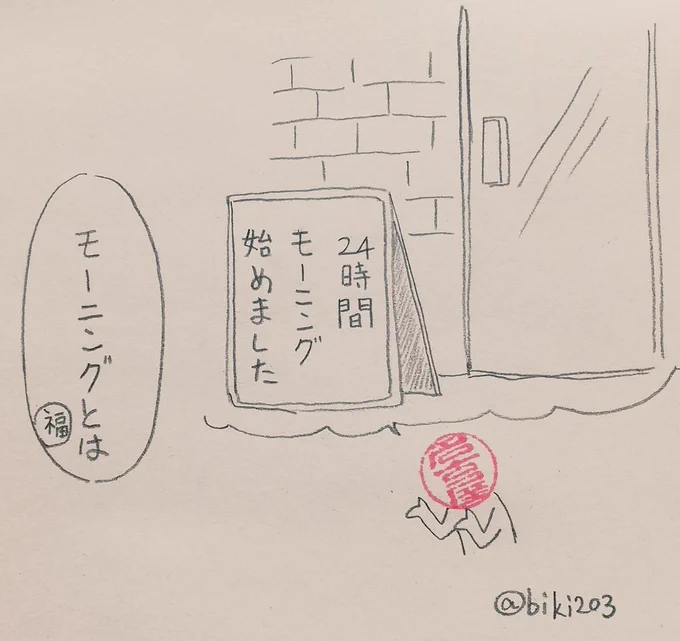 24時間
モーニング
始めました
モーニングとは
福
@biki203